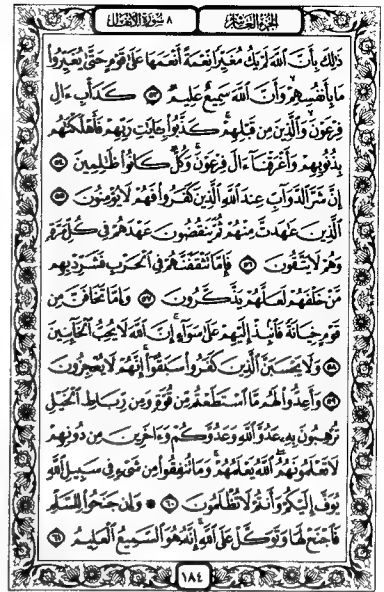 الجزء العاشر
٨ سورة الأنفال
ذَٰلِكَ بِأَنَّ ٱللَّهَ لَمْ يَكُ مُغَيِّرًا نِّعْمَةً أَنْعَمَهَا عَلَىٰ قَوْمٍ حَتَّىٰ يُغَيِّرُوا۟
مَا بِأَنفُسِهِمْ وَأَنَّ ٱللَّهَ سَمِيعٌ عَلِيمٌ ٥٣ كَدَأْبِ ءَالِ
فِرْعَوْنَ وَٱلَّذِينَ مِن قَبْلِهِمْ كَذَّبُوا۟ بِـَٔايَٰتِ رَبِّهِمْ فَأَهْلَكْنَٰهُم
بِذُنُوبِهِمْ وَأَغْرَقْنَآ ءَالَ فِرْعَوْنَ وَكُلٌّ كَانُوا۟ ظَٰلِمِينَ ٥٤
إِنَّ شَرَّ ٱلدَّوَآبِّ عِندَ ٱللَّهِ ٱلَّذِينَ كَفَرُوا۟ فَهُمْ لَا يُؤْمِنُونَ ٥٥
ٱلَّذِينَ عَٰهَدتَّ مِنْهُمْ ثُمَّ يَنقُضُونَ عَهْدَهُمْ فِى كُلِّ مَرَّةٍ
وَهُمْ لَا يَتَّقُونَ ٥٦ فَإِمَّا تَثْقَفَنَّهُمْ فِى ٱلْحَرْبِ فَشَرِّدْ بِهِم
مَّنْ خَلْفَهُمْ لَعَلَّهُمْ يَذَّكَّرُونَ ٥٧ وَإِمَّا تَخَافَنَّ مِن
قَوْمٍ خِيَانَةً فَٱنۢبِذْ إِلَيْهِمْ عَلَىٰ سَوَآءٍ إِنَّ ٱللَّهَ لَا يُحِبُّ ٱلْخَآئِنِينَ
٥٨ وَلَا يَحْسَبَنَّ ٱلَّذِينَ كَفَرُوا۟ سَبَقُوٓا۟ إِنَّهُمْ لَا يُعْجِزُونَ
٥٩ وَأَعِدُّوا۟ لَهُم مَّا ٱسْتَطَعْتُم مِّن قُوَّةٍ وَمِن رِّبَاطِ ٱلْخَيْلِ
تُرْهِبُونَ بِهِۦ عَدُوَّ ٱللَّهِ وَعَدُوَّكُمْ وَءَاخَرِينَ مِن دُونِهِمْ
لَا تَعْلَمُونَهُمُ ٱللَّهُ يَعْلَمُهُمْ وَمَا تُنفِقُوا۟ مِن شَىْءٍ فِى سَبِيلِ ٱللَّهِ
يُوَفَّ إِلَيْكُمْ وَأَنتُمْ لَا تُظْلَمُونَ ٦٠ ۞ وَإِن جَنَحُوا۟ لِلسَّلْمِ
فَٱجْنَحْ لَهَا وَتَوَكَّلْ عَلَى ٱللَّهِ إِنَّهُۥ هُوَ ٱلسَّمِيعُ ٱلْعَلِيمُ ٦١
١٨٤